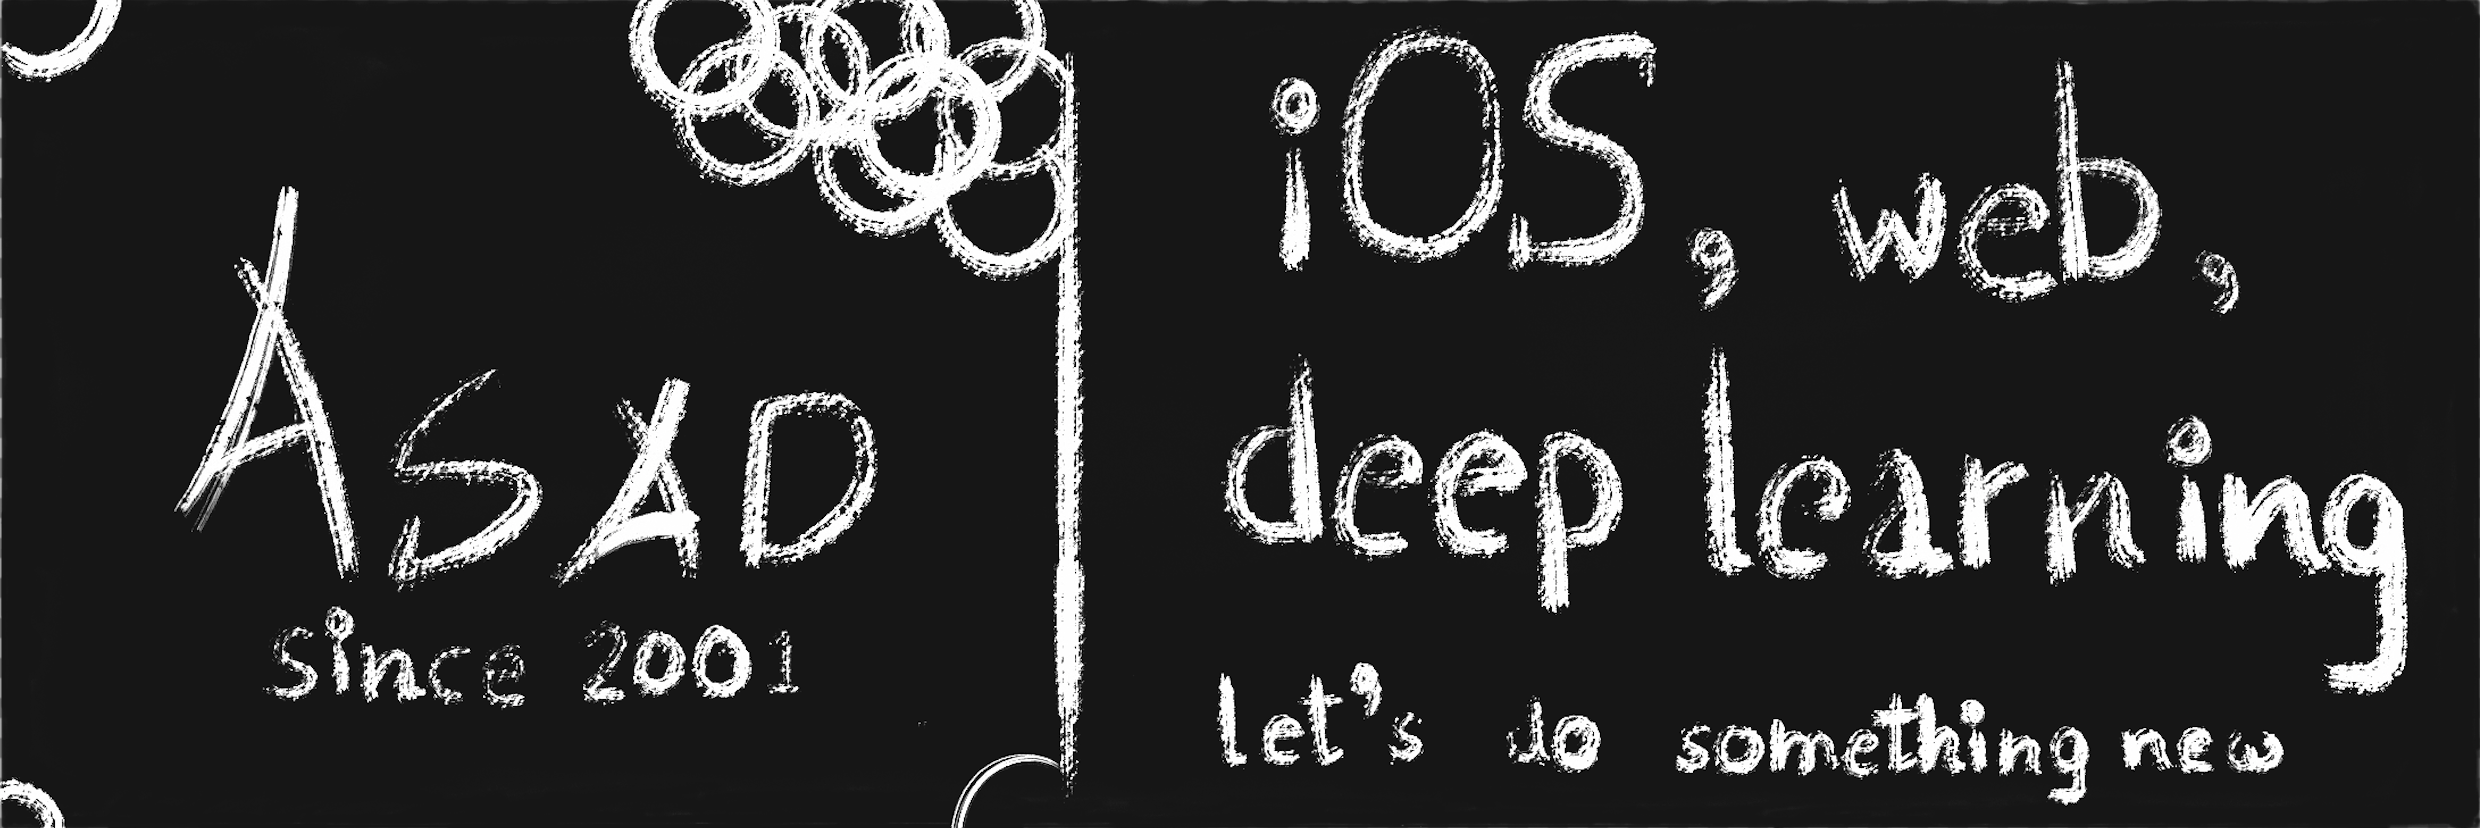 ASAD
since 2001
iOS, web,
deep learning
let's do something new